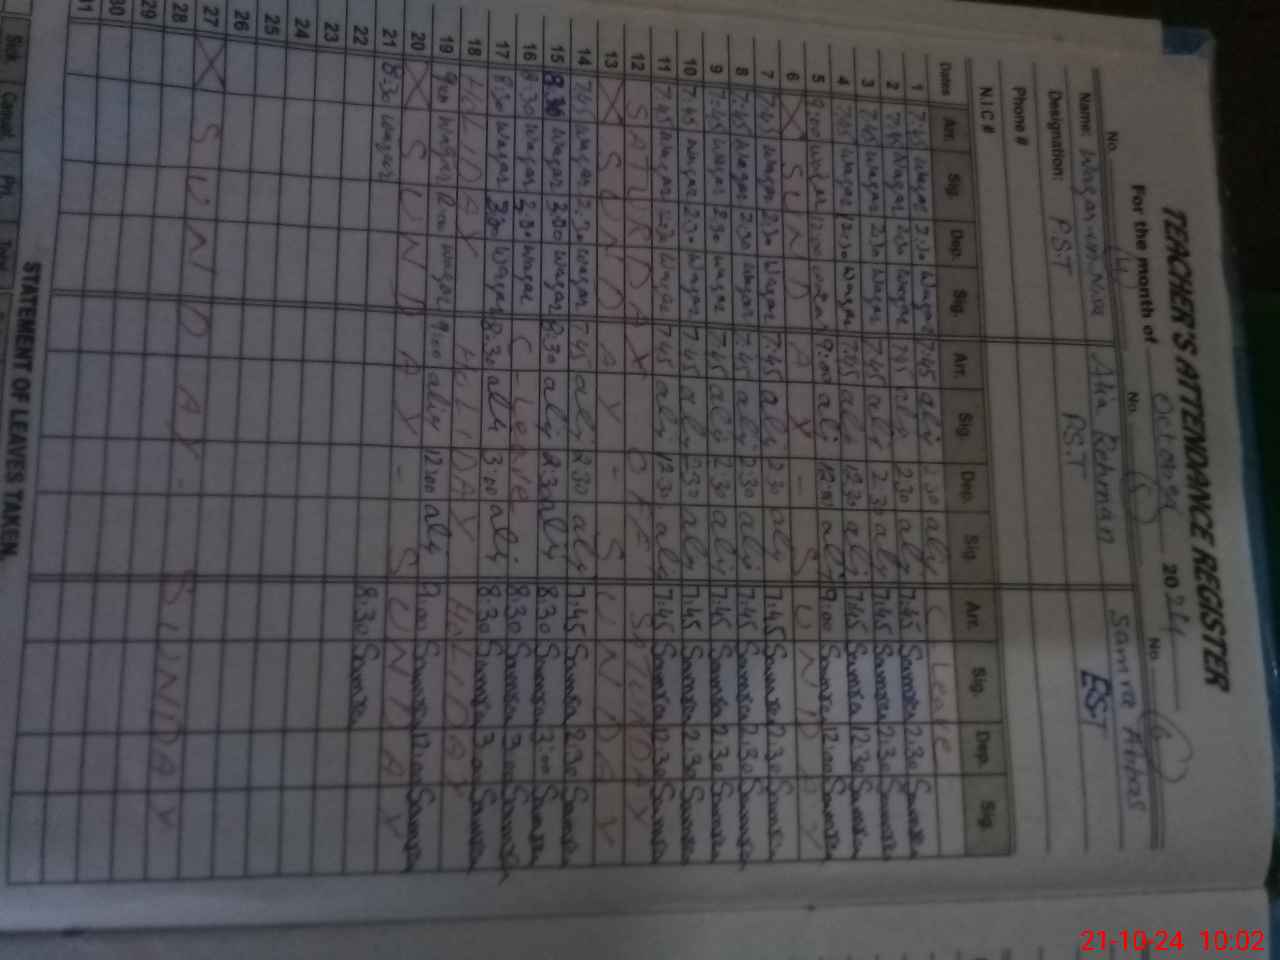 TEACHER'S ATTENDANCE REGISTER
For the month of October 2024
No. No. No.
Name: Alia Rehman Samra Abbas
Designation: P.S.T P.S.T EST
Phone #
N.I.C #
Dates Arr. Sig. Dep. Sig. Arr. Sig. Dep. Sig. Arr. Sig. Dep. Sig.
1 7:45 waqar 2:30 waqar 7:45 aly 2:30 aly C Leave
2 7:45 waqar 2:30 waqar 7:45 aly 2:30 aly 7:45 Samra 2:30 Samra
3 7:45 waqar 2:30 waqar 7:45 aly 2:30 aly 7:45 Samra 2:30 Samra
4 7:45 waqar 12:30 waqar 7:45 aly 12:30 aly 7:45 Samra 12:30 Samra
5 9:00 waqar 12:00 waqar 9:00 aly 12:00 aly 9:00 Samra 12:00 Samra
6 X SUNDAY - SUNDAY
7 7:45 waqar 2:30 waqar 7:45 aly 2:30 aly 7:45 Samra 2:30 Samra
8 7:45 waqar 2:30 waqar 7:45 aly 2:30 aly 7:45 Samra 2:30 Samra
9 7:45 waqar 2:30 waqar 7:45 aly 2:30 aly 7:45 Samra 2:30 Samra
10 7:45 waqar 2:30 waqar 7:45 aly 2:30 aly 7:45 Samra 2:30 Samra
11 7:45 waqar 12:30 waqar 7:45 aly 12:30 aly 7:45 Samra 12:30 Samra
12 SATURDAY OFF SATURDAY
13 X SUNDAY - SUNDAY
14 7:45 waqar 2:30 waqar 7:45 aly 2:30 aly 7:45 Samra 2:30 Samra
15 8:30 waqar 3:00 waqar 8:30 aly 2:30 aly 8:30 Samra 3:00 Samra
16 8:30 waqar waqar C-Leave 8:30 Samra 3:00 Samra
17 8:30 waqar 3:00 waqar 8:30 aly 3:00 aly 8:30 Samra 3:00 Samra
18 HOLIDAY HOLIDAY HOLIDAY
19 9:00 waqar 12:00 waqar 9:00 aly 12:00 aly 9:00 Samra 12:00 Samra
20 X SUNDAY - SUNDAY
21 8:30 waqar
22 8:30 Samra
23
24
25
26
27 X SUNDAY - SUNDAY
28
29
30
31
STATEMENT OF LEAVES TAKEN
Sick Casual Pri. Total
21-10-24 10:02